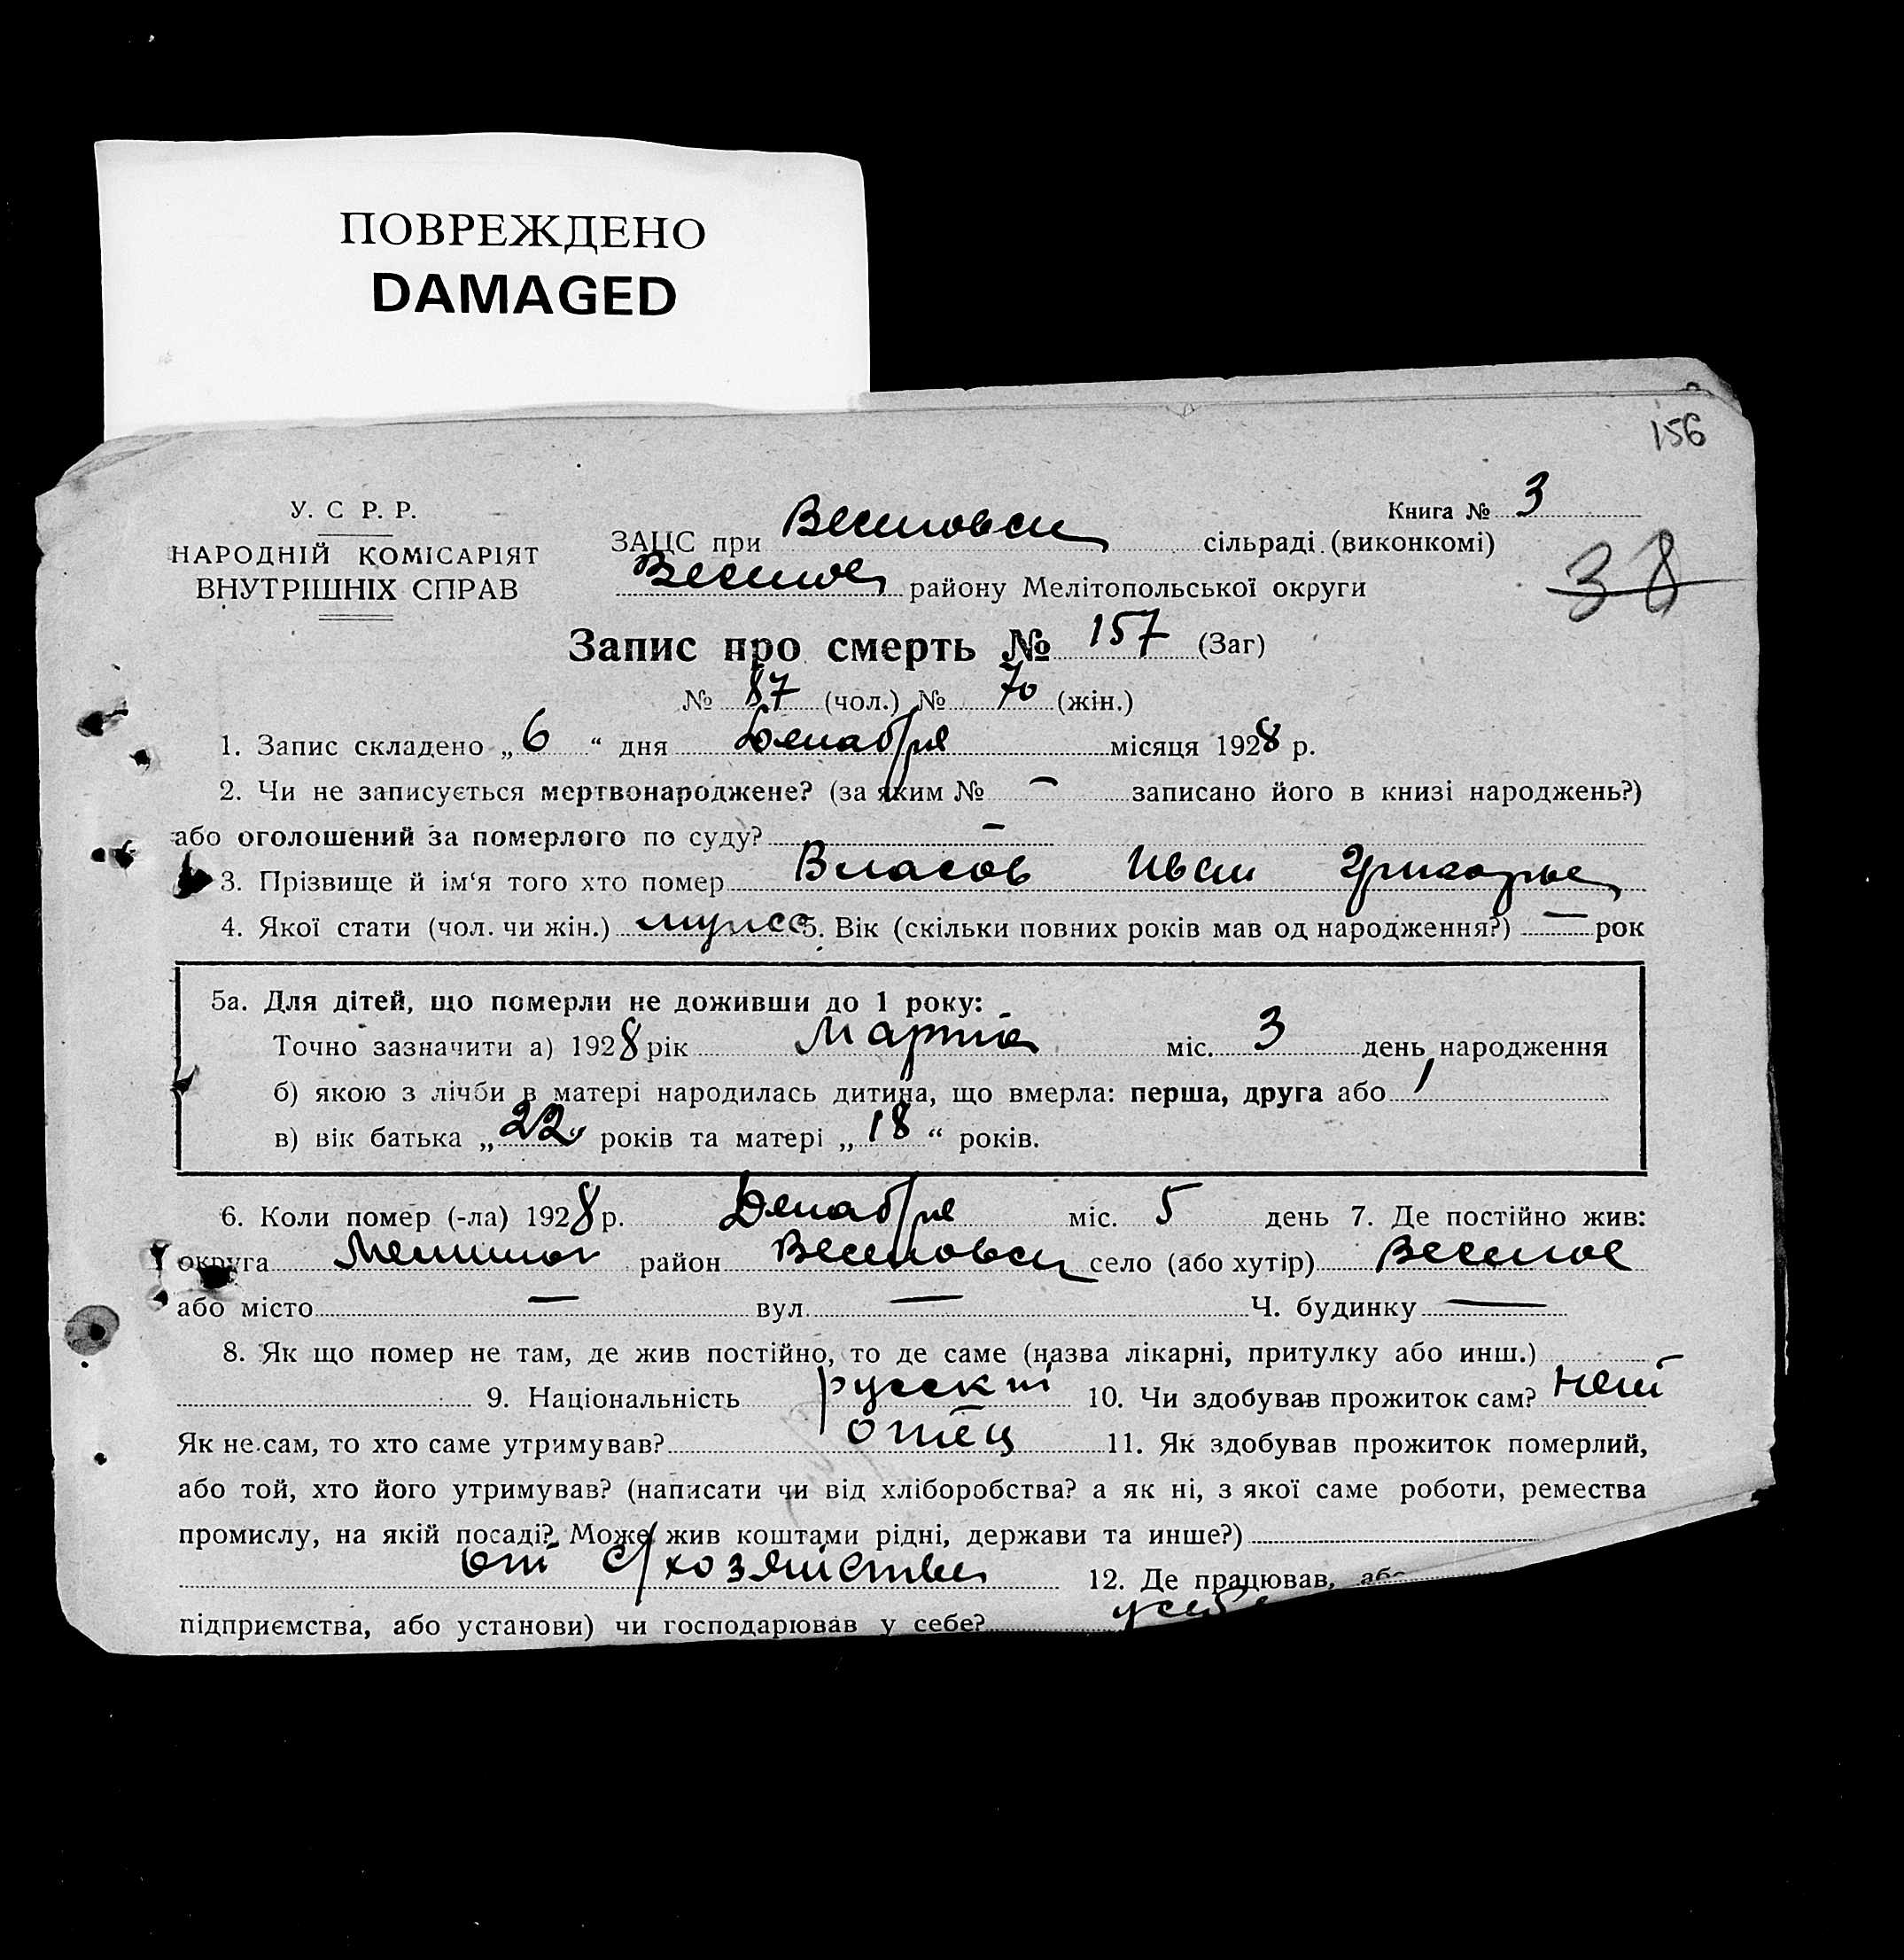 ПОВРЕЖДЕНО
DAMAGED
156
У. С Р. Р.
НАРОДНІЙ КОМІСАРІЯТ
ВНУТРІШНІХ СПРАВ
Книга № 3
38
ЗАЦС при Веселовск сільраді (виконкомі)
Веселов району Мелітопольської округи
Запис про смерть № 157 (Заг)
№ 87 (чол.) № 70 (жін.)
1. Запис складено „ 6 “ дня Декабря місяця 1928 р.
2. Чи не записується мертвонароджене? (за яким № — записано його в книзі народжень?)
або оголошений за померлого по суду? —
3. Прізвище й ім‘я того хто помер Власов Иван Григорье
4. Якої стати (чол. чи жін.) мужс 5. Вік (скільки повних років мав од народження?) — рок
5а. Для дітей, що померли не доживши до 1 року:
Точно зазначити а) 1928 рік Марта міс. 3 день народження
б) якою з лічби в матері народилась дитина, що вмерла: перша, друга або 1
в) вік батька „ 22 років та матері „ 18 “ років.
6. Коли помер (-ла) 1928 р. Декабря міс. 5 день 7. Де постійно жив:
округа Мелитоп район Веселовск село (або хутір) Веселое
або місто — вул. — Ч. будинку —
8. Як що помер не там, де жив постійно, то де саме (назва лікарні, притулку або инш.)
9. Національність русский 10. Чи здобував прожиток сам? нет
Як не сам, то хто саме утримував? отец 11. Як здобував прожиток померлий,
або той, хто його утримував? (написати чи від хліборобства? а як ні, з якої саме роботи, ремества
промислу, на якій посаді? Може жив коштами рідні, держави та инше?)
от с/хозяйства 12. Де працював, або
підприємства, або установи) чи господарював у себе?